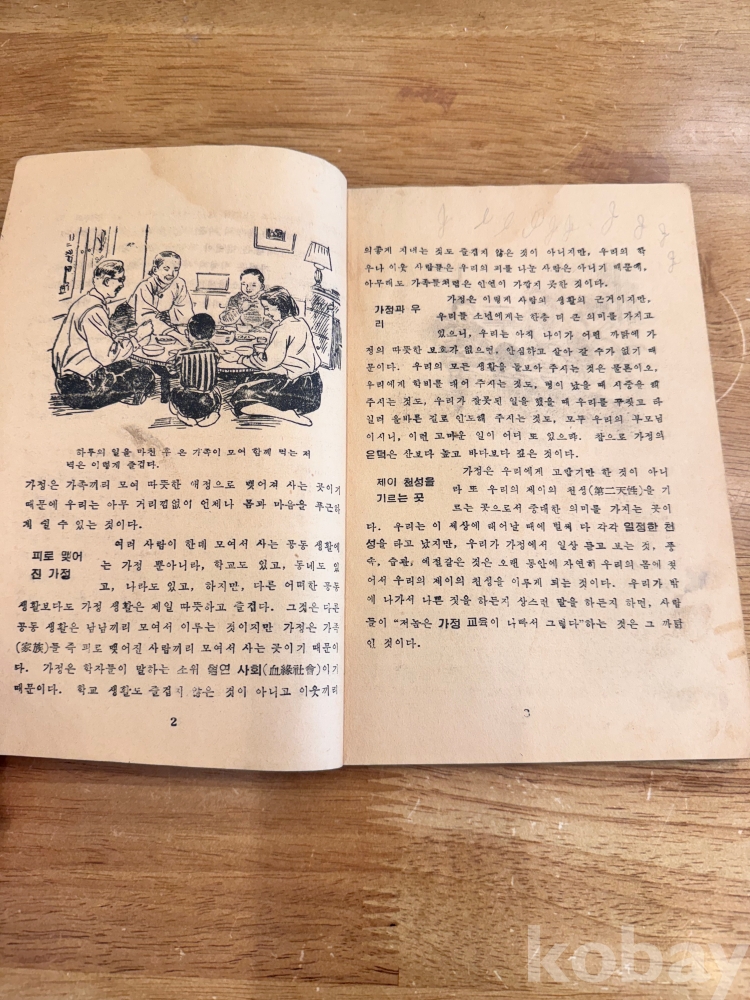 하루의 일을 마친 후 온 가족이 모여 함께 먹는 저
녁은 이렇게 즐겁다.
가정은 가족끼리 모여 따뜻한 애정으로 맺어져 사는 곳이기
때문에 우리는 아무 거리낌없이 언제나 몸과 마음을 푸근하
게 쉴 수 있는 것이다.
피로 맺어
진 가정
여러 사람이 한데 모여서 사는 공동 생활에
는 가정 뿐아니라, 학교도 있고, 동네도 있
고, 나라도 있고, 하지만, 다른 어떠한 공동
생활보다도 가정 생활은 제일 따뜻하고 즐겁다. 그것은 다른
공동 생활은 남남끼리 모여서 이루는 것이지만 가정은 가족
(家族)들 즉 피로 맺어진 사람끼리 모여서 사는 곳이기 때문이
다. 가정은 학자들이 말하는 소위 혈연 사회(血緣社會)이기
때문이다. 학교 생활도 즐겁지 않은 것이 아니고 이웃끼리
2
의좋게 지내는 것도 즐겁지 않은 것이 아니지만, 우리의 학
우나 이웃 사람들은 우리의 피를 나눈 사람은 아니기 때문에,
아무래도 가족들처럼은 인연이 가깝지 못한 것이다.
가정과 우
리
가정은 이렇게 사람의 생활의 근거이지만,
우리들 소년에게는 한층 더 큰 의미를 가지고
있으니, 우리는 아직 나이가 어린 까닭에 가
정의 따뜻한 보호가 없으면, 안심하고 살아 갈 수가 없기 때
문이다. 우리의 모든 생활을 돌보아 주시는 것은 물론이오,
우리에게 학비를 대어 주시는 것도, 병이 났을 때 시중을 해
주시는 것도, 우리가 잘못된 일을 했을 때 우리를 꾸짖고 타
일러 올바른 길로 인도해 주시는 것도, 모두 우리의 부모님
이시니, 이런 고마운 일이 어디 또 있으랴. 참으로 가정의
은덕은 산보다 높고 바다보다 깊은 것이다.
제이 천성을
기르는 곳
가정은 우리에게 고맙기만 한 것이 아니
라 또 우리의 제이의 천성(第二天性)을 기
르는 곳으로서 중대한 의미를 가지는 곳이
다. 우리는 이 세상에 태어날 때에 벌써 다 각각 일정한 천
성을 타고 났지만, 우리가 가정에서 일상 듣고 보는 것, 풍
속, 습관, 예절같은 것은 오랜 동안에 자연히 우리의 몸에 젖
어서 우리의 제이의 천성을 이루게 되는 것이다. 우리가 밖
에 나가서 나쁜 짓을 하든지 상스런 말을 하든지 하면, 사람
들이 "저놈은 가정 교육이 나빠서 그렇다"하는 것은 그 까닭
인 것이다.
3
kobay